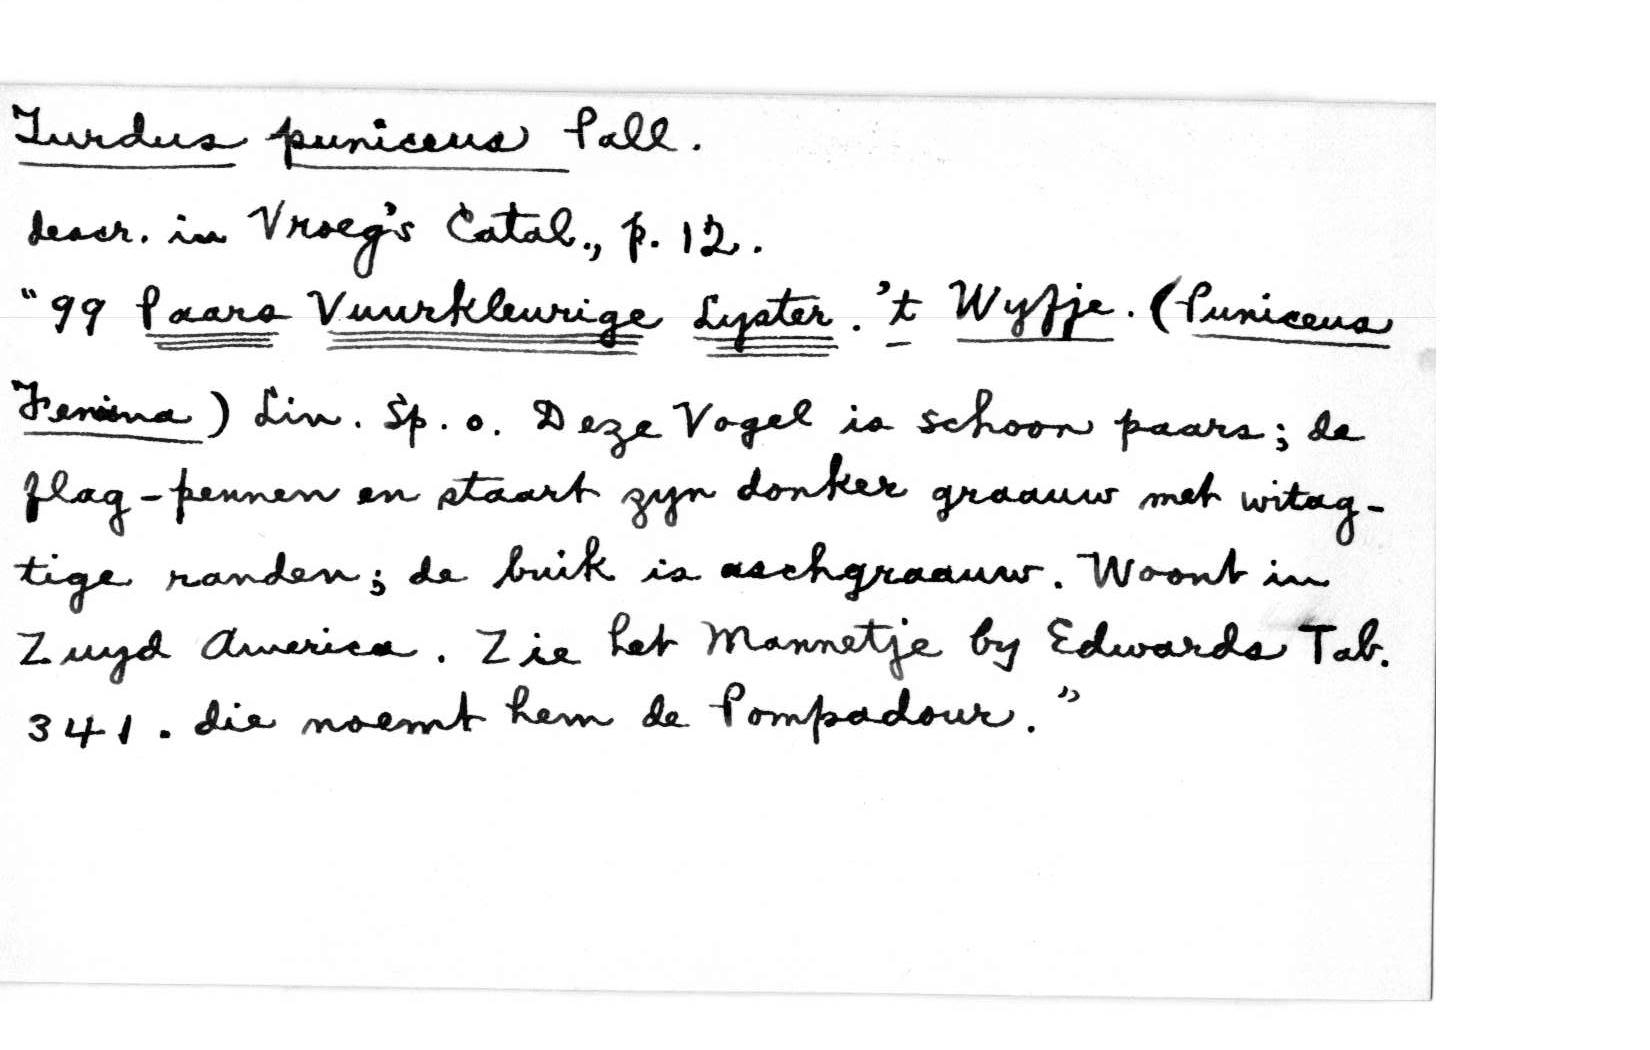 Turdus puniceus Pall.
descr. in Vroeg's Catal., p. 12.
"99 Paars Vuurkleurige Lyster. 't Wyfje. (Puniceus
Femina) Lin. Sp. o. Deze Vogel is schoon paars; de
flag-pennen en staart zyn donker graauw met witag-
tige randen; de buik is aschgraauw. Woont in
Zuyd America. Zie het Mannetje by Edwards Tab.
341. die noemt hem de Pompadour."